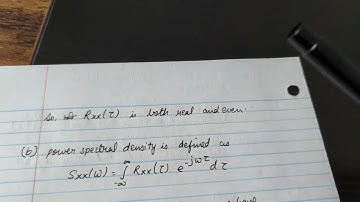 So, Rxx(τ) is both real and even.
(b) power spectral density is defined as
Sxx(ω) = ∫_{-∞}^{∞} Rxx(τ) e^{-jωτ} dτ